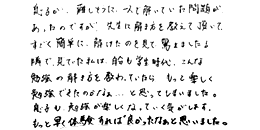 息子が、難しそうに、って解いていた問題が
あったのですが、先生に解き方を教えて頂いて、
すごく簡単に、解けたのを見て、驚きました。
隣で見ていた私は、私も学生時代、こんな
勉強の解き方を教わっていたら、もっと楽しく
勉強できたのかなぁ…と思ってしまいました。
息子も勉強が楽しくなっていく気がします。
もっと早く体験すれば良かったなぁと思いました。